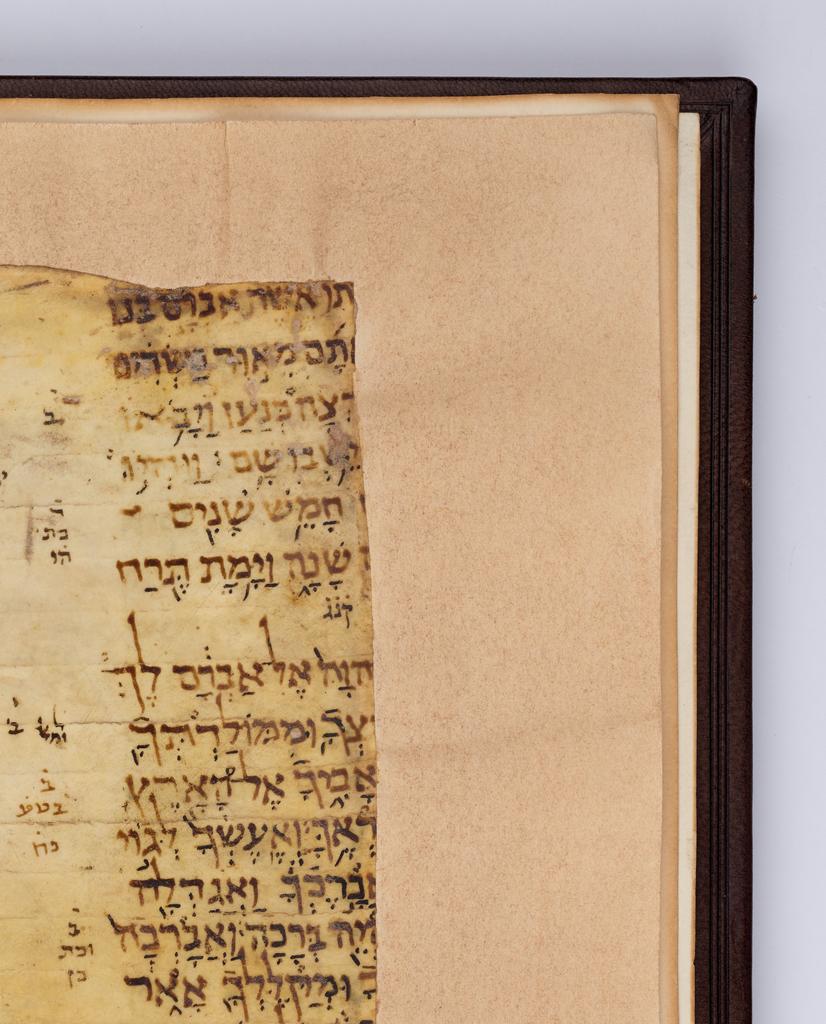 תו אשת אברם בנו
תָם מֵאוּר כַּשְׂדִּים
רצָה כְּנַעַן וַיָּבֹאוּ
שְׁבוּ שָׁם וַיִּהְיוּ
חָמֵשׁ שָׁנִים
שָׁנָה וַיָּמָת תֶּרַח
קנג
הוָה אֶל אַבְרָם לֶךְ
צְךָ וּמִמּוֹלַדְתְּךָ
אָבִיךָ אֶל הָאָרֶץ
רְאֶךָּ וְאֶעֶשְׂךָ לְגוֹי
אֲבָרֶכְךָ וַאֲגַדְּלָה
יֵה בְּרָכָה וַאֲבָרְכָה
ךָ וּמְקַלֶּלְךָ אָאֹר